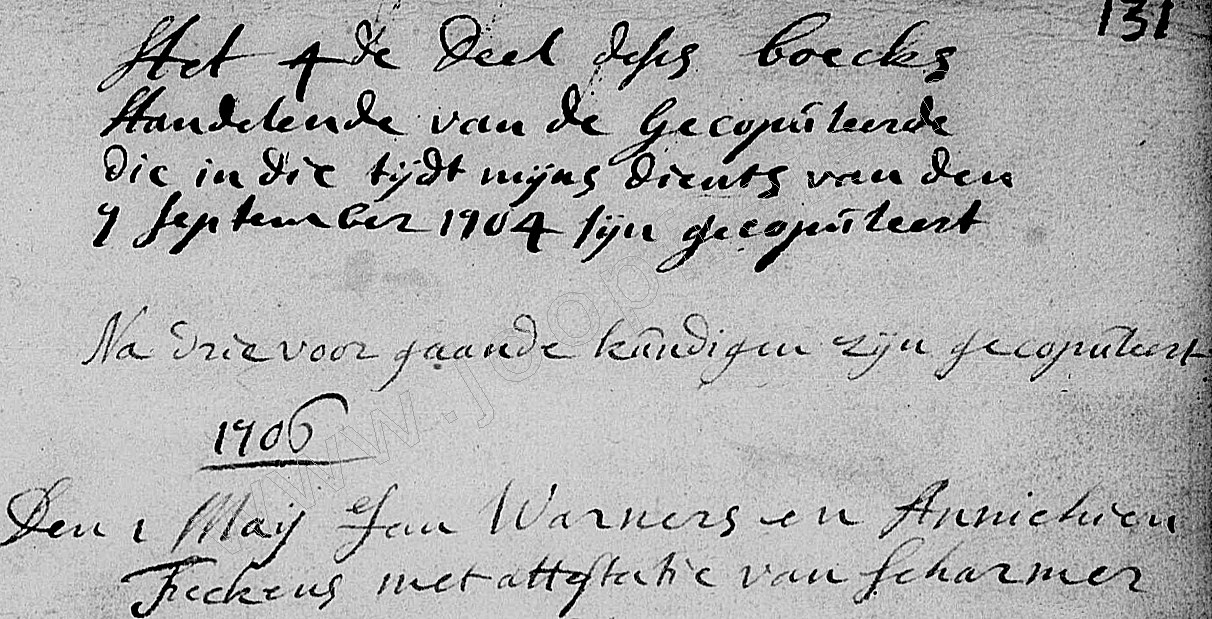 131
Het 4 de Deel deses boecks
Handelende van de Gecopuleerde
die in die tijdt mijns dients van den
7 September 1704 sijn gecopuleert
Na drie voor gaande kundigen zijn gecopuleert
1706
Den 1 Maij Jan Warners en Annichien
Feckens met attestatie van Scharmer
www.joop